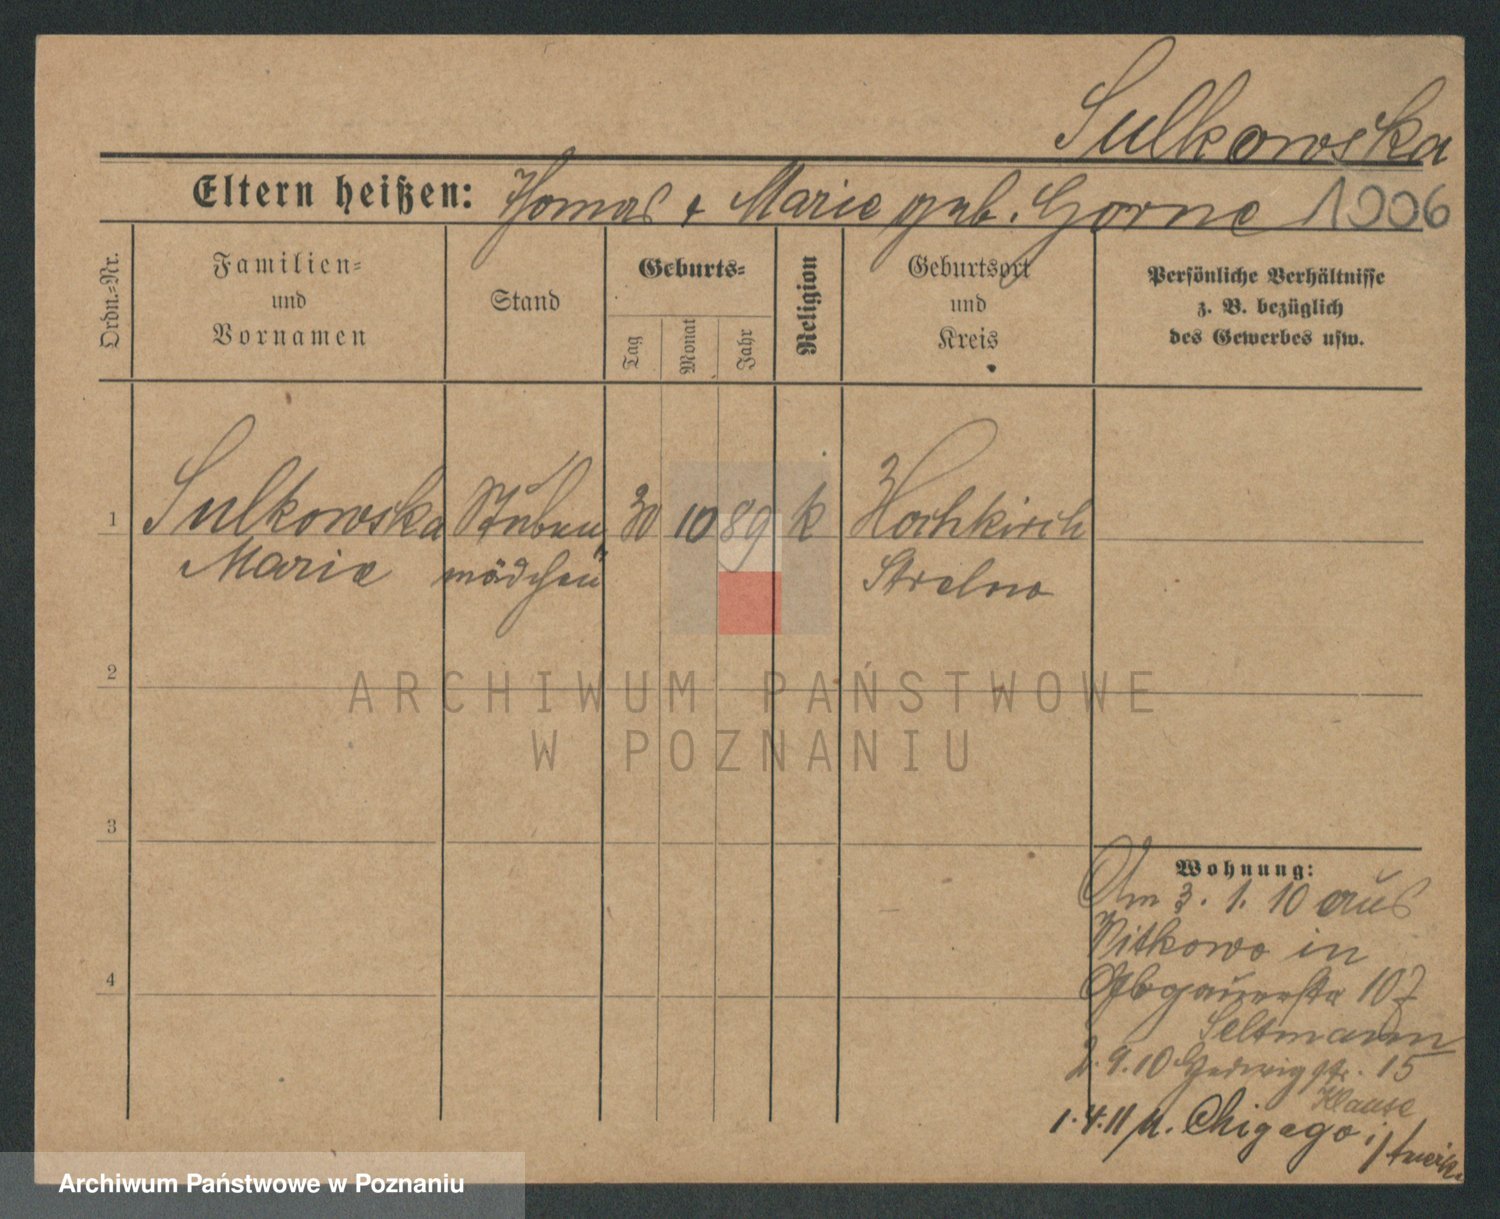 Sulkowska
Eltern heißen: Thomas + Marie geb. Gorne 1006
Ordn.=Nr.
Familien=
und
Vornamen
Stand
Geburts=
Tag
Monat
Jahr
Religion
Geburtsort
und
Kreis
Persönliche Verhältnisse
z. B. bezüglich
des Gewerbes usw.
1 Sulkowska Stuben 30 10 89 k Hochkirch
Marie mädchen Strelno
2
ARCHIWUM PAŃSTWOWE
W POZNANIU
3
Wohnung:
Am 3. 1. 10 aus
Witkowo in
107
Seltmann
2. 9. 10 Hedwigstr. 15
Klause
1.4.11 n. Chigago i/Amerik.
4
Archiwum Państwowe w Poznaniu